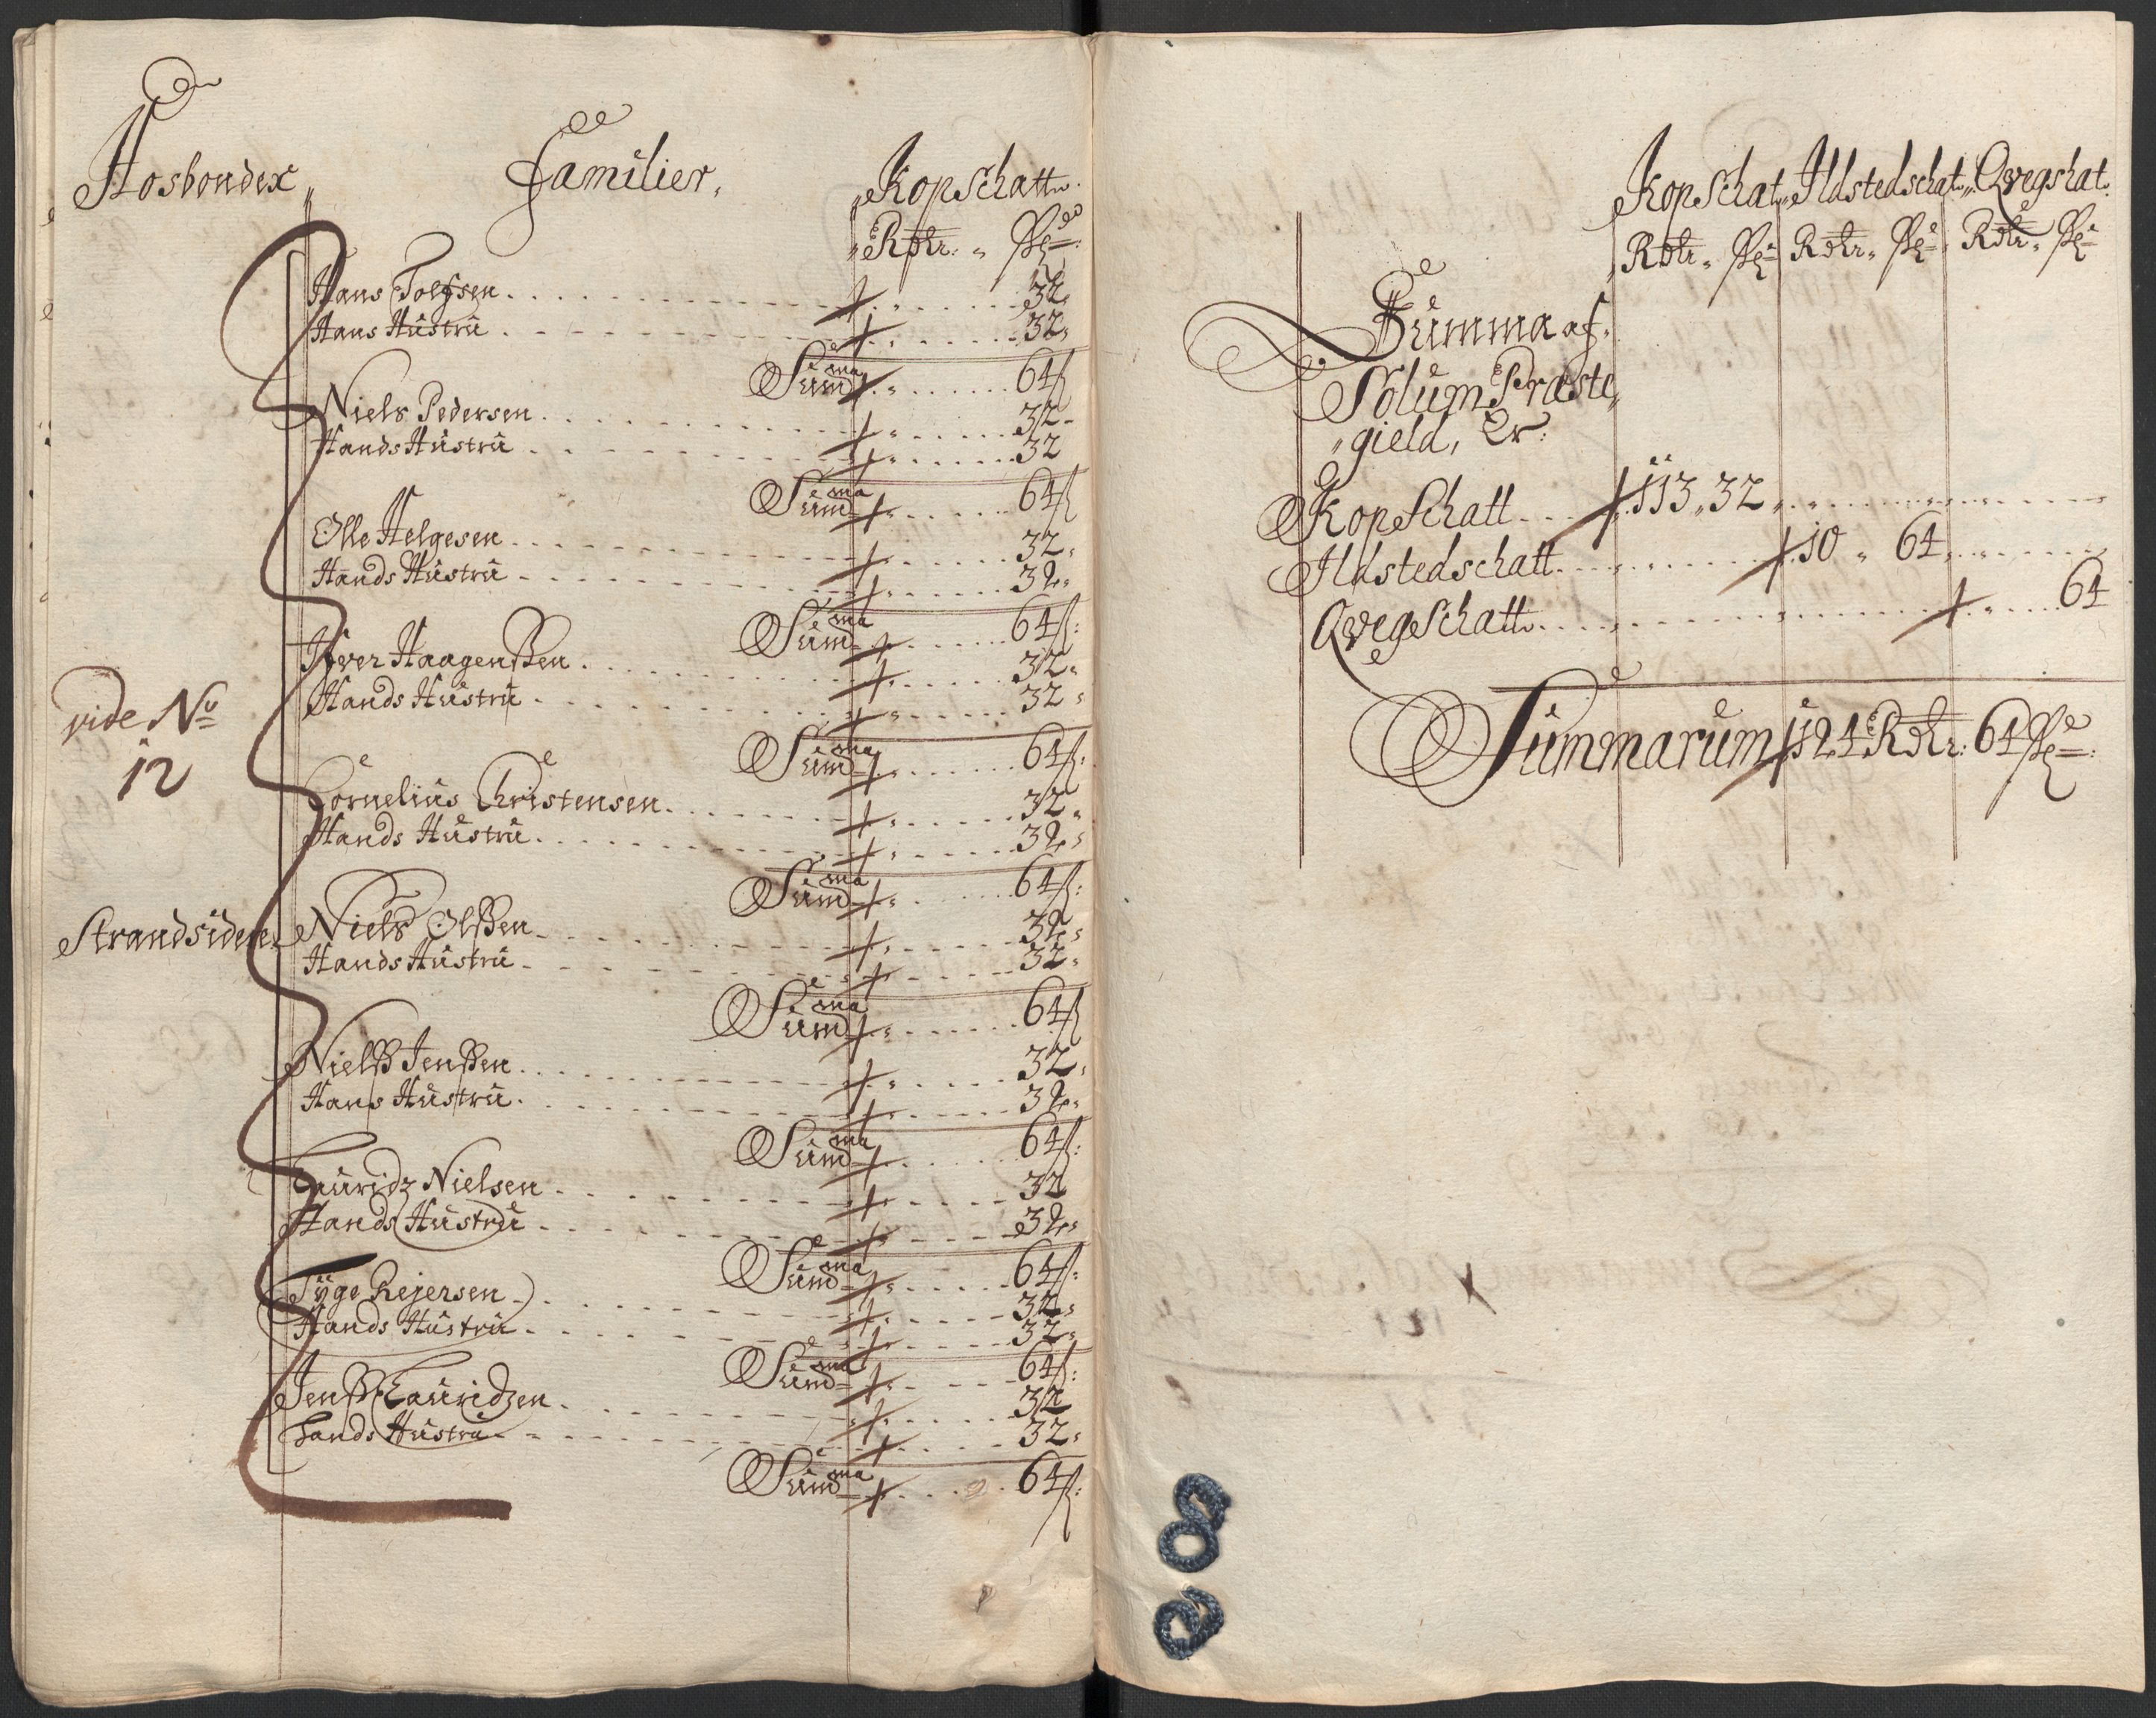 Hosbonder
Familier,
Kopschatt
Rdlr: ß
Hans Tolfsen 32
Hans Hustru 32
Sum̄a 64ß
Niels Pedersen 32
Hands Hustru 32
Sum̄a 64ß
Olle Helgesen 32
Hands Hustru 32
Sum̄a 64ß
Ifver Haagenßen 32
Hands Hustru 32
Sum̄a 64ß
vide No
12
Cornelius Christensen 32
Hands Hustru 32
Sum̄a 64ß
Strandsidere Niels Olßen 32
Hands Hustru 32
Sum̄a 64ß
Nielß Jenßen 32
Hans Hustru 32
Sum̄a 64ß
Lauridz Nielsen 32
Hands Hustru 32
Sum̄a 64ß
Tyge Rejersen 32
Hands Hustru 32
Sum̄a 64ß
Jenß Lauridzen 32
Hands Hustru 32
Sum̄a 64ß
Kopschat Ildstedschat Qvegshat
Rdlr ß Rdlr ß Rdlr ß
Summa af
Solum Præste
gield, Er:
Kopschatt 113 32
Ildstedschatt 10 64
Qvegschatt 64
Summarum 124 Rdlr: 64 ß